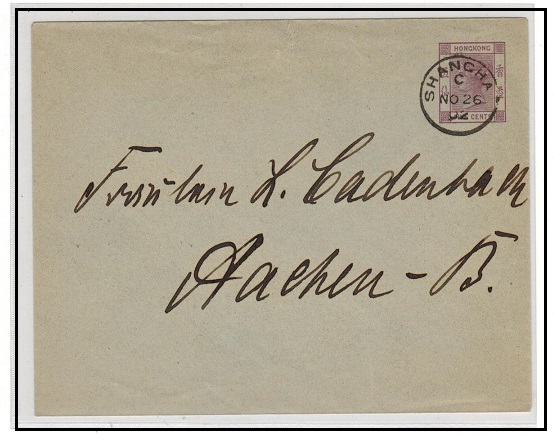 HONGKONG
SHANGHA
C
NO 26
92
CENTS
Fräulein L. Cadenbach
Aachen - B.